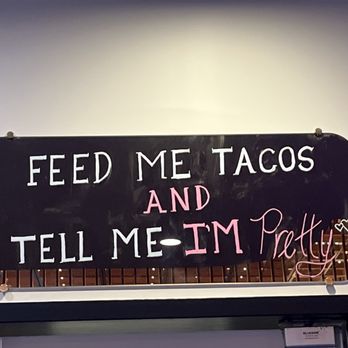 FEED ME TACOS
AND
TELL ME I'M Pretty